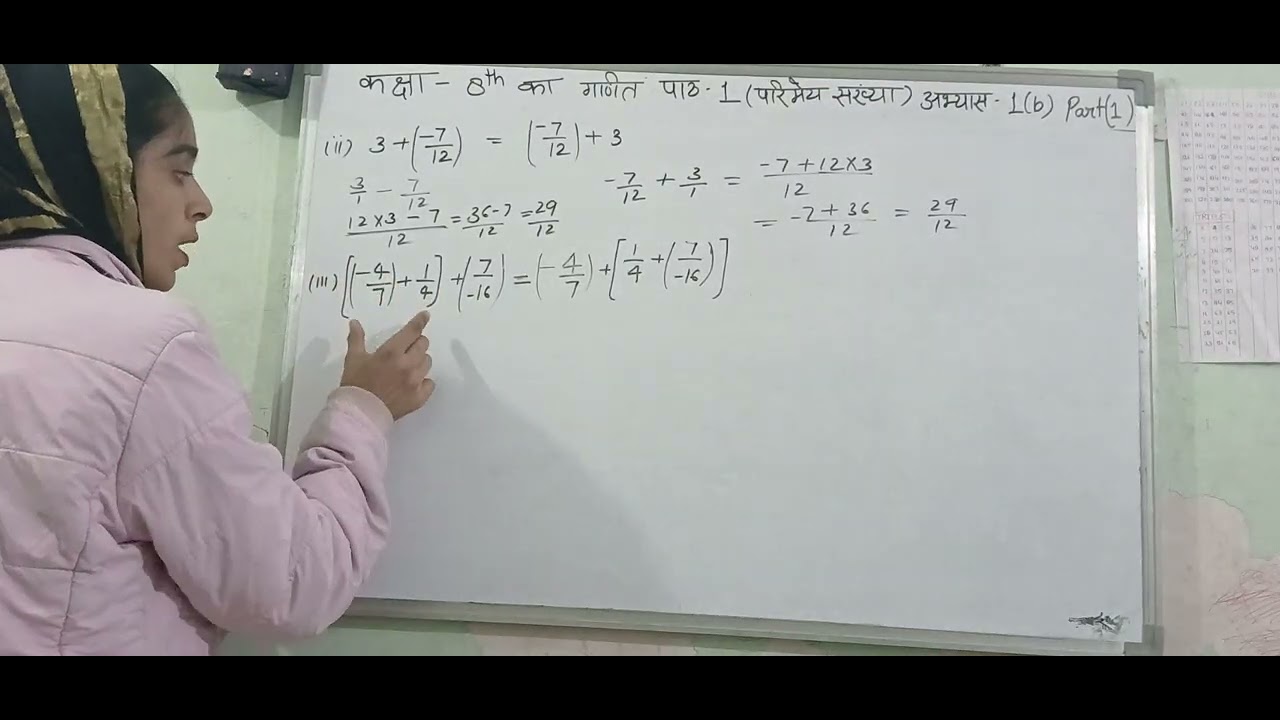 कक्षा - 8th का गणित पाठ - 1 (परिमेय संख्या) अभ्यास - 1(b) Part(1)
(ii) 3 + (-7/12) = (-7/12) + 3
3/1 - 7/12
(12×3 - 7)/12 = (36-7)/12 = 29/12
-7/12 + 3/1 = (-7 + 12×3)/12
= (-7 + 36)/12 = 29/12
(iii) [(-4/7) + 1/4] + (7/-16) = (-4/7) + [1/4 + (7/-16)]